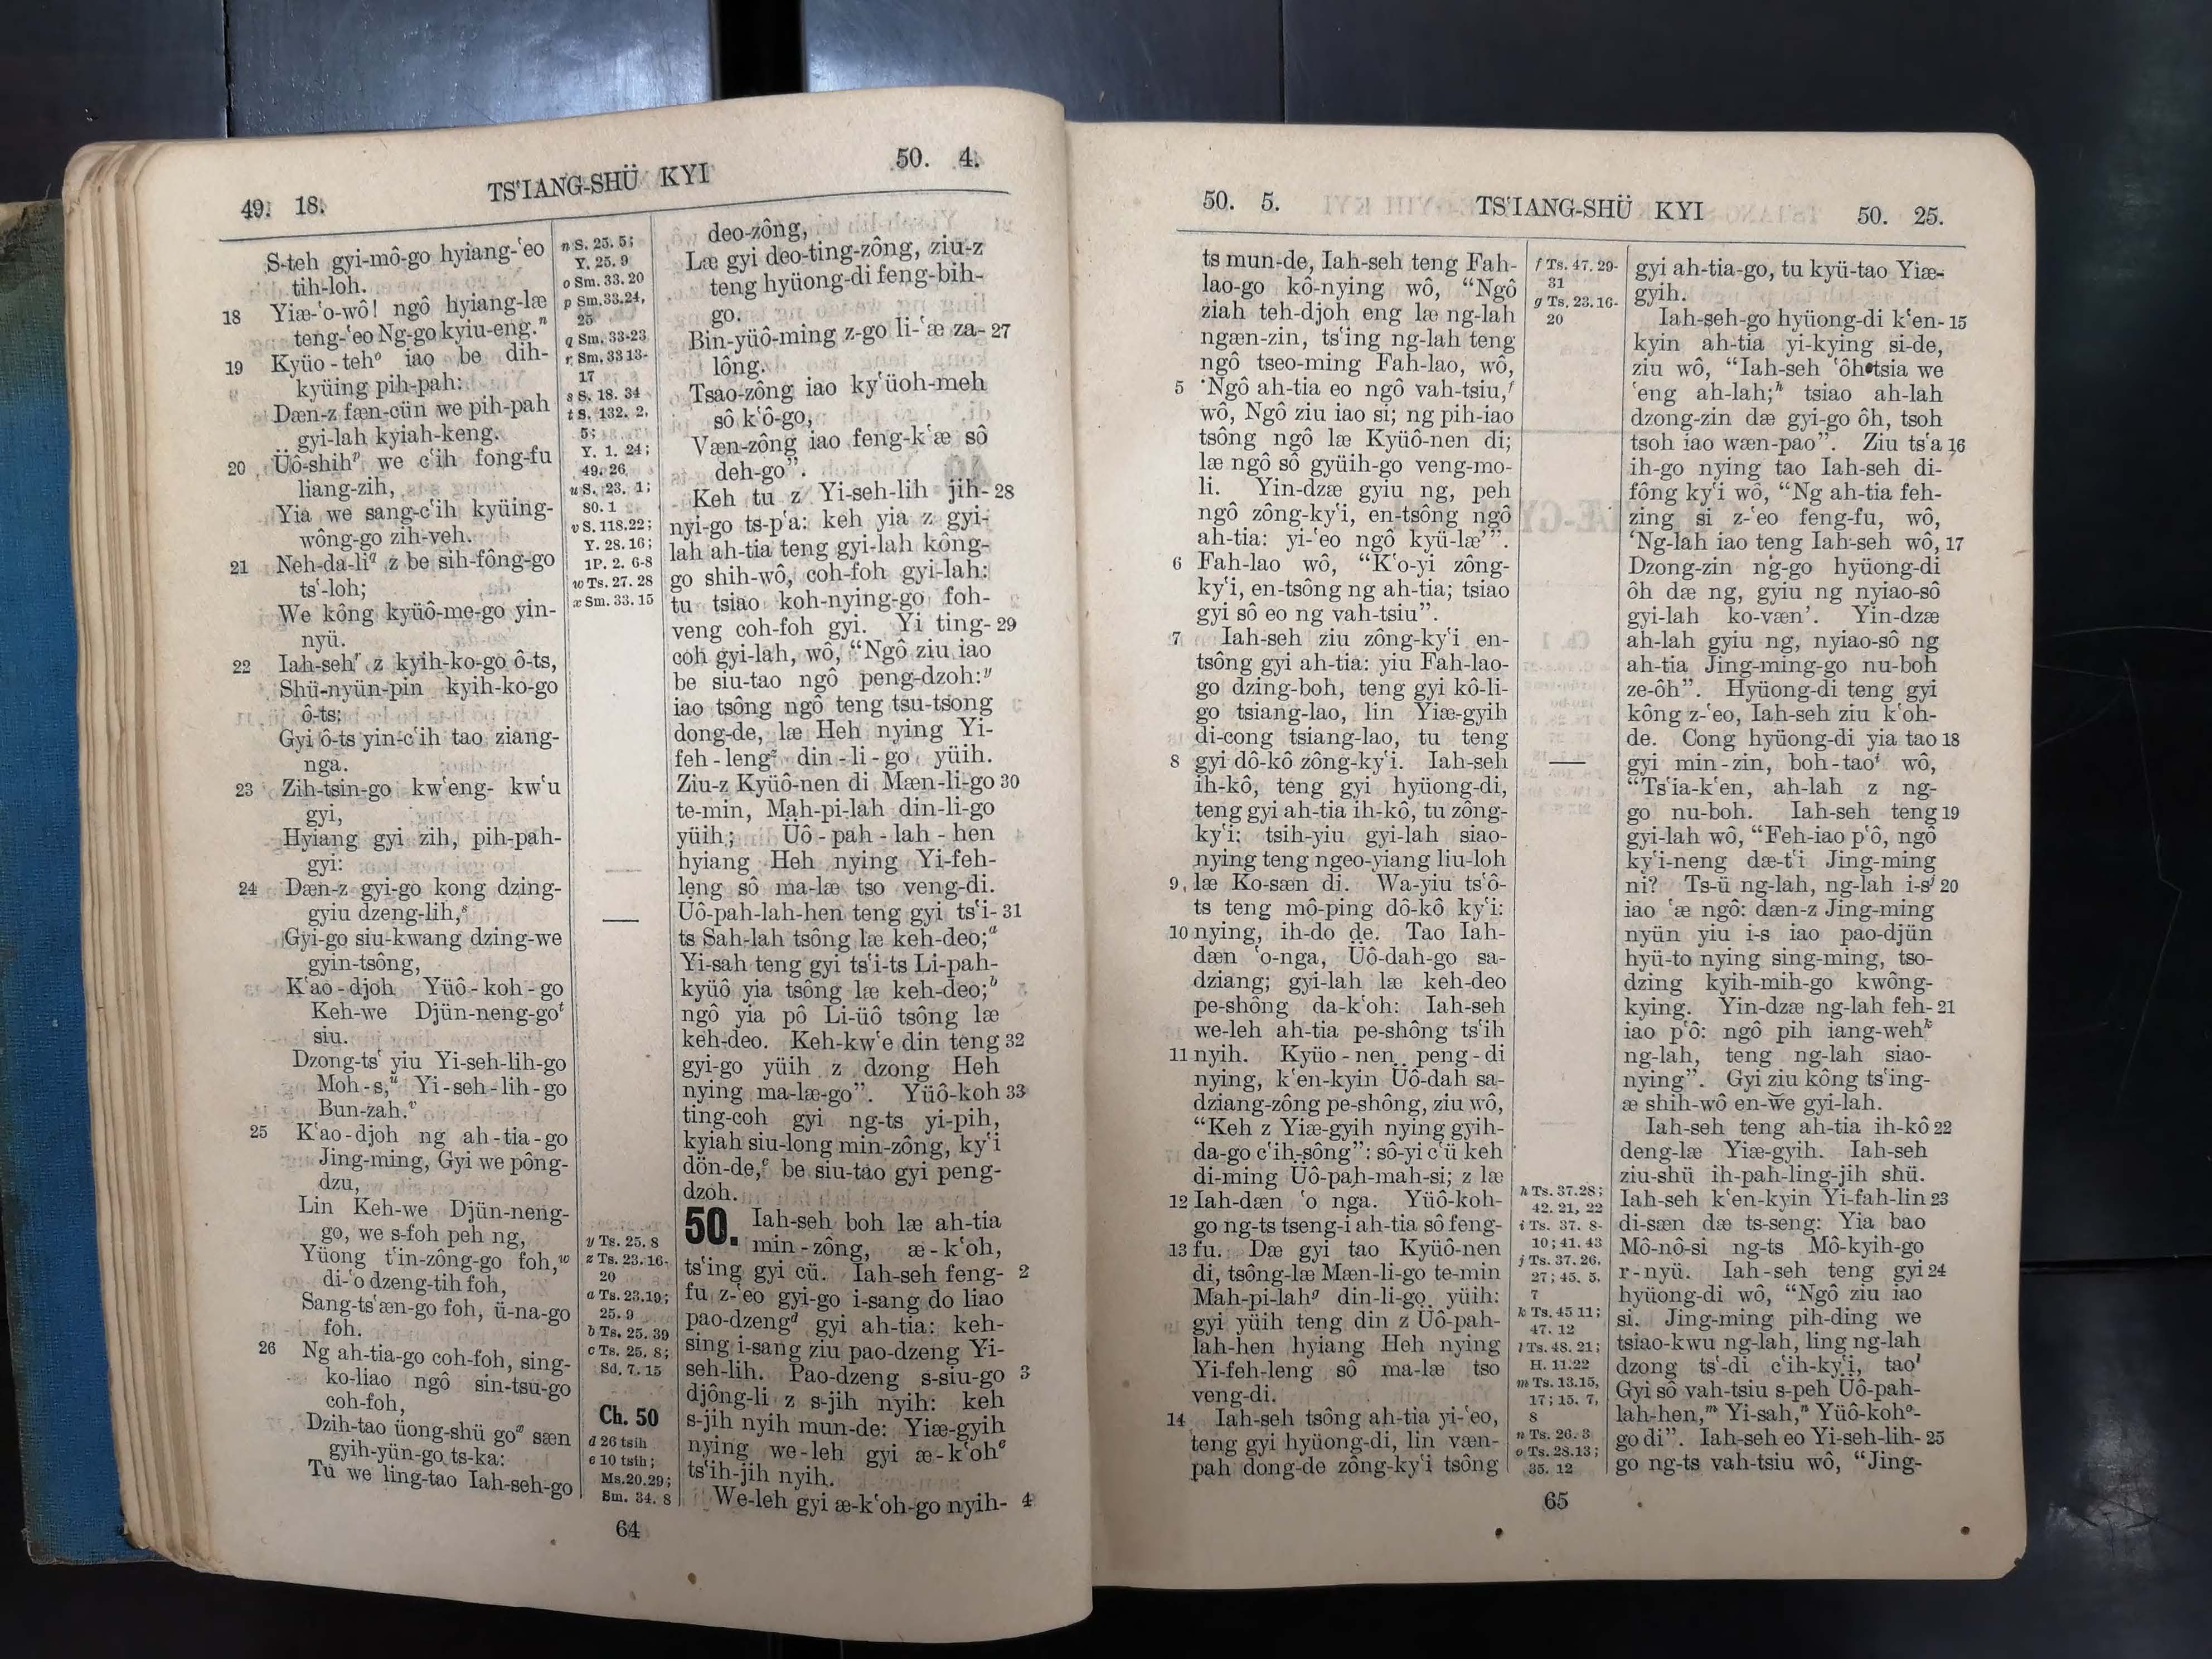 49. 18.
TS‘IANG-SHÜ KYI
50. 4.
S-teh gyi-mô-go hyiang-‘eo
tih-loh.
18 Yiæ-‘o-wô! ngô hyiang-læ
teng-‘eo Ng-go kyiu-eng.ⁿ
19 Kyüo-tehᵒ iao be dih-
kyüing pih-pah:
Dæn-z fæn-cün we pih-pah
gyi-lah kyiah-keng.
20 Üô-shihᵖ we c‘ih fong-fu
liang-zih,
Yia we sang-c‘ih kyüing-
wông-go zih-veh.
21 Neh-da-liq z be sih-fông-go
ts‘-loh;
We kông kyüô-me-go yin-
nyü.
22 Iah-sehʳ z kyih-ko-go ô-ts,
Shü-nyün-pin kyih-ko-go
ô-ts;
Gyi ô-ts yin-c‘ih tao ziang-
nga.
23 Zih-tsin-go kw‘eng- kw‘u
gyi,
Hyiang gyi zih, pih-pah-
gyi:
24 Dæn-z gyi-go kong dzing-
gyiu dzeng-lih,ˢ
Gyi-go siu-kwang dzing-we
gyin-tsông,
K‘ao-djoh Yüô-koh-go
Keh-we Djün-neng-goᵗ
siu.
Dzong-ts‘ yiu Yi-seh-lih-go
Moh-s,ᵘ Yi-seh-lih-go
Bun-zah.ᵛ
25 K‘ao-djoh ng ah-tia-go
Jing-ming, Gyi we pông-
dzu,
Lin Keh-we Djün-neng-
go, we s-foh peh ng,
Yüong t‘in-zông-go foh,ʷ
di-‘o dzeng-tih foh,
Sang-ts‘æn-go foh, ü-na-go
foh.
26 Ng ah-tia-go coh-foh, sing-
ko-liao ngô sin-tsu-go
coh-foh,
Dzih-tao üong-shü goˣ sæn
gyih-yün-go ts-ka:
Tu we ling-tao Iah-seh-go
n S. 25. 5;
Y. 25. 9
o Sm. 33. 20
p Sm. 33.24,
25
q Sm. 33·23
r Sm. 33 13-
17
s S. 18. 34
t S. 132. 2,
5;
Y. 1. 24;
49. 26
u S. 23. 1;
80. 1
v S. 118.22;
Y. 28. 16;
1P. 2. 6-8
w Ts. 27. 28
x Sm. 33. 15
y Ts. 25. 8
z Ts. 23. 16-
20
a Ts. 23.19;
25. 9
b Ts. 25. 39
c Ts. 25. 8;
Sd. 7. 15
Ch. 50
d 26 tsih
e 10 tsih;
Ms.20.29;
Sm. 34. 8
deo-zông,
Læ gyi deo-ting-zông, ziu-z
teng hyüong-di feng-bih-
go.
Bin-yüô-ming z-go li-‘æ za- 27
lông.
Tsao-zông iao ky‘üoh-meh
sô k‘ô-go,
Væn-zông iao feng-k‘æ sô
deh-go”.
Keh tu z Yi-seh-lih jih- 28
nyi-go ts-p‘a: keh yia z gyi-
lah ah-tia teng gyi-lah kông-
go shih-wô, coh-foh gyi-lah:
tu tsiao koh-nying-go foh-
veng coh-foh gyi. Yi ting- 29
coh gyi-lah, wô, “Ngô ziu iao
be siu-tao ngô peng-dzoh:ʸ
iao tsông ngô teng tsu-tsong
dong-de, læ Heh nying Yi-
feh-lengᶻ din-li-go yüih.
Ziu-z Kyüô-nen di Mæn-li-go 30
te-min, Mah-pi-lah din-li-go
yüih; Üô-pah-lah-hen
hyiang Heh nying Yi-feh-
leng sô ma-læ tso veng-di.
Üô-pah-lah-hen teng gyi ts‘i- 31
ts Sah-lah tsông læ keh-deo;ᵃ
Yi-sah teng gyi ts‘i-ts Li-pah-
kyüô yia tsông læ keh-deo;ᵇ
ngô yia pô Li-üô tsông læ
keh-deo. Keh-kw‘e din teng 32
gyi-go yüih z dzong Heh
nying ma-læ-go”. Yüô-koh 33
ting-coh gyi ng-ts yi-pih,
kyiah siu-long min-zông, ky‘i
dön-de,ᶜ be siu-tao gyi peng-
dzoh.
50. Iah-seh boh læ ah-tia
min-zông, æ-k‘oh,
ts‘ing gyi cü. Iah-seh feng- 2
fu z-‘eo gyi-go i-sang do liao
pao-dzengᵈ gyi ah-tia: keh-
sing i-sang ziu pao-dzeng Yi-
seh-lih. Pao-dzeng s-siu-go 3
djông-li z s-jih nyih: keh
s-jih nyih mun-de: Yiæ-gyih
nying we-leh gyi æ-k‘ohᵉ
ts‘ih-jih nyih.
We-leh gyi æ-k‘oh-go nyih- 4
64
50. 5.
TS‘IANG-SHÜ KYI
50. 25.
ts mun-de, Iah-seh teng Fah-
lao-go kô-nying wô, “Ngô
ziah teh-djoh eng læ ng-lah
ngæn-zin, ts‘ing ng-lah teng
ngô tseo-ming Fah-lao, wô,
5 ‘Ngô ah-tia eo ngô vah-tsiu,ᶠ
wô, Ngô ziu iao si; ng pih-iao
tsông ngô læ Kyüô-nen di;
læ ngô sô gyüih-go veng-mo-
li. Yin-dzæ gyiu ng, peh
ngô zông-ky‘i, en-tsông ngô
ah-tia: yi-‘eo ngô kyü-læ’”.
6 Fah-lao wô, “K‘o-yi zông-
ky‘i, en-tsông ng ah-tia; tsiao
gyi sô eo ng vah-tsiu”.
7 Iah-seh ziu zông-ky‘i en-
tsông gyi ah-tia: yiu Fah-lao-
go dzing-boh, teng gyi kô-li-
go tsiang-lao, lin Yiæ-gyih
di-cong tsiang-lao, tu teng
8 gyi dô-kô zông-ky‘i. Iah-seh
ih-kô, teng gyi hyüong-di,
teng gyi ah-tia ih-kô, tu zông-
ky‘i; tsih-yiu gyi-lah siao-
nying teng ngeo-yiang liu-loh
9 læ Ko-sæn di. Wa-yiu ts‘ô-
ts teng mô-ping dô-kô ky‘i:
10 nying, ih-do de. Tao Iah-
dæn ‘o-nga, Üô-dah-go sa-
dziang; gyi-lah læ keh-deo
pe-shông da-k‘oh: Iah-seh
we-leh ah-tia pe-shông ts‘ih
11 nyih. Kyüo-nen peng-di
nying, k‘en-kyin Üô-dah sa-
dziang-zông pe-shông, ziu wô,
“Keh z Yiæ-gyih nying gyih-
da-go c‘ih-sông”: sô-yi c‘ü keh
di-ming Üô-pah-mah-si; z læ
12 Iah-dæn ‘o nga. Yüô-koh-
go ng-ts tseng-i ah-tia sô feng-
13 fu. Dæ gyi tao Kyüô-nen
di, tsông-læ Mæn-li-go te-min
Mah-pi-lahᵍ din-li-go yüih:
gyi yüih teng din z Üô-pah-
lah-hen hyiang Heh nying
Yi-feh-leng sô ma-læ tso
veng-di.
14 Iah-seh tsông ah-tia yi-‘eo,
teng gyi hyüong-di, lin væn-
pah dong-de zông-ky‘i tsông
f Ts. 47. 29-
31
g Ts. 23.16-
20
h Ts. 37.28;
42. 21, 22
i Ts. 37. 8-
10; 41. 43
j Ts. 37.26,
27; 45. 5,
7
k Ts. 45 11;
47. 12
l Ts. 48. 21;
H. 11.22
m Ts. 13.15,
17; 15. 7,
8
n Ts. 26. 3
o Ts. 28.13;
35. 12
gyi ah-tia-go, tu kyü-tao Yiæ-
gyih.
Iah-seh-go hyüong-di k‘en- 15
kyin ah-tia yi-kying si-de,
ziu wô, “Iah-seh ‘ôh-tsia we
‘eng ah-lah;ʰ tsiao ah-lah
dzong-zin dæ gyi-go ôh, tsoh
tsoh iao wæn-pao”. Ziu ts‘a 16
ih-go nying tao Iah-seh di-
fông ky‘i wô, “Ng ah-tia feh-
zing si z-‘eo feng-fu, wô,
‘Ng-lah iao teng Iah-seh wô, 17
Dzong-zin ng-go hyüong-di
ôh dæ ng, gyiu ng nyiao-sô
gyi-lah ko-væn’. Yin-dzæ
ah-lah gyiu ng, nyiao-sô ng
ah-tia Jing-ming-go nu-boh
ze-ôh”. Hyüong-di teng gyi
kông z-‘eo, Iah-seh ziu k‘oh-
de. Cong hyüong-di yia tao 18
gyi min-zin, boh-taoⁱ wô,
“Ts‘ia-k‘en, ah-lah z ng-
go nu-boh. Iah-seh teng 19
gyi-lah wô, “Feh-iao p‘ô, ngô
ky‘i-neng dæ-t‘i Jing-ming
ni? Ts-ü ng-lah, ng-lah i-sʲ 20
iao ‘æ ngô: dæn-z Jing-ming
nyün yiu i-s iao pao-djün
hyü-to nying sing-ming, tso-
dzing kyih-mih-go kwông-
kying. Yin-dzæ ng-lah feh- 21
iao p‘ô: ngô pih iang-wehᵏ
ng-lah, teng ng-lah siao-
nying”. Gyi ziu kông ts‘ing-
æ shih-wô en-we gyi-lah.
Iah-seh teng ah-tia ih-kô 22
deng-læ Yiæ-gyih. Iah-seh
ziu-shü ih-pah-ling-jih shü.
Iah-seh k‘en-kyin Yi-fah-lin 23
di-sæn dæ ts-seng: Yia bao
Mô-nô-si ng-ts Mô-kyih-go
r-nyü. Iah-seh teng gyi 24
hyüong-di wô, “Ngô ziu iao
si. Jing-ming pih-ding we
tsiao-kwu ng-lah, ling ng-lah
dzong ts‘-di c‘ih-ky‘i, taoˡ
Gyi sô vah-tsiu s-peh Üô-pah-
lah-hen,ᵐ Yi-sah,ⁿ Yüô-kohᵒ-
go di”. Iah-seh eo Yi-seh-lih- 25
go ng-ts vah-tsiu wô, “Jing-
65